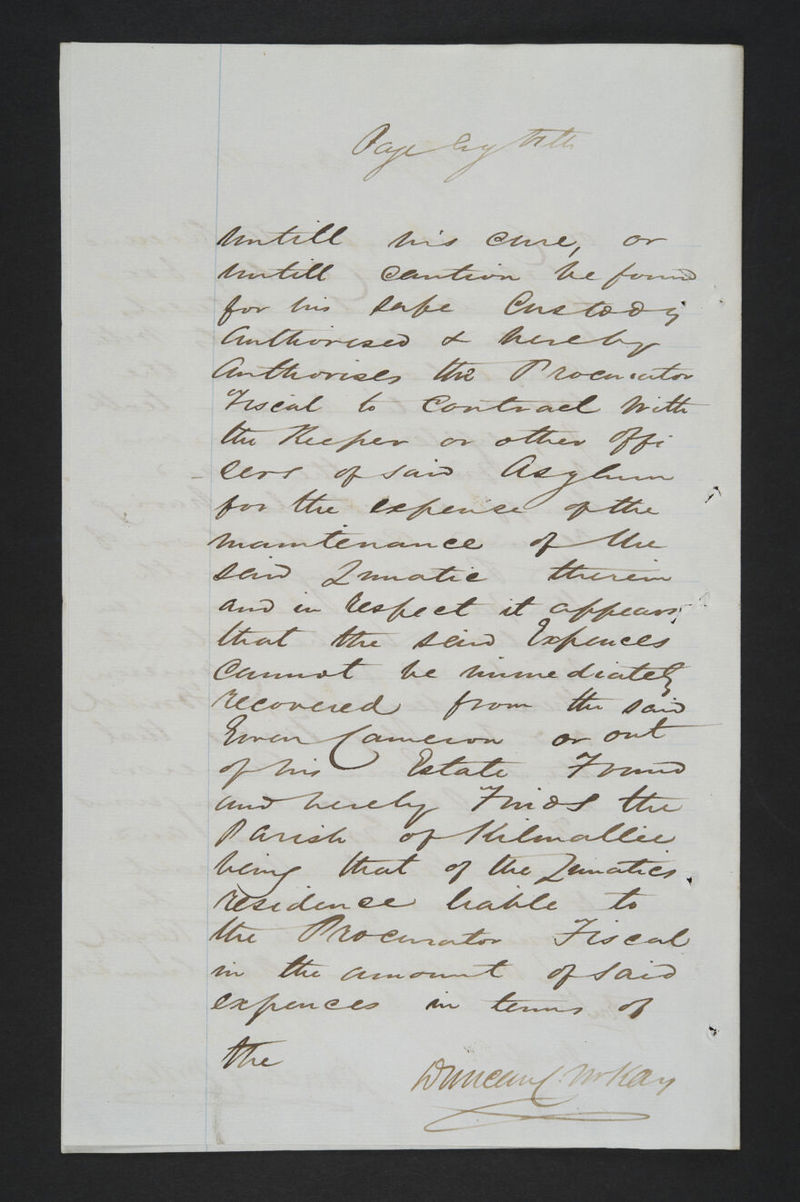 Page Eighth
untill his cure, or
untill caution be found
for his safe Custody
Authorised & hereby
Authorises the Procurator
Fiscal to Contract with
the Keeper or other offi
cers of said Asylum
for the expense of the
maintenance of the
said Lunatic therein
and in respect it appears
that the said Expences
cannot be immediately
recovered from the said
Ewen Cameron or out
of his Estate Found
and hereby Finds the
Parish of Kilmallie
being that of the Lunatics
residence liable to
the Procurator Fiscal
in the amount of said
expences in terms of
the
Duncan C. McKay